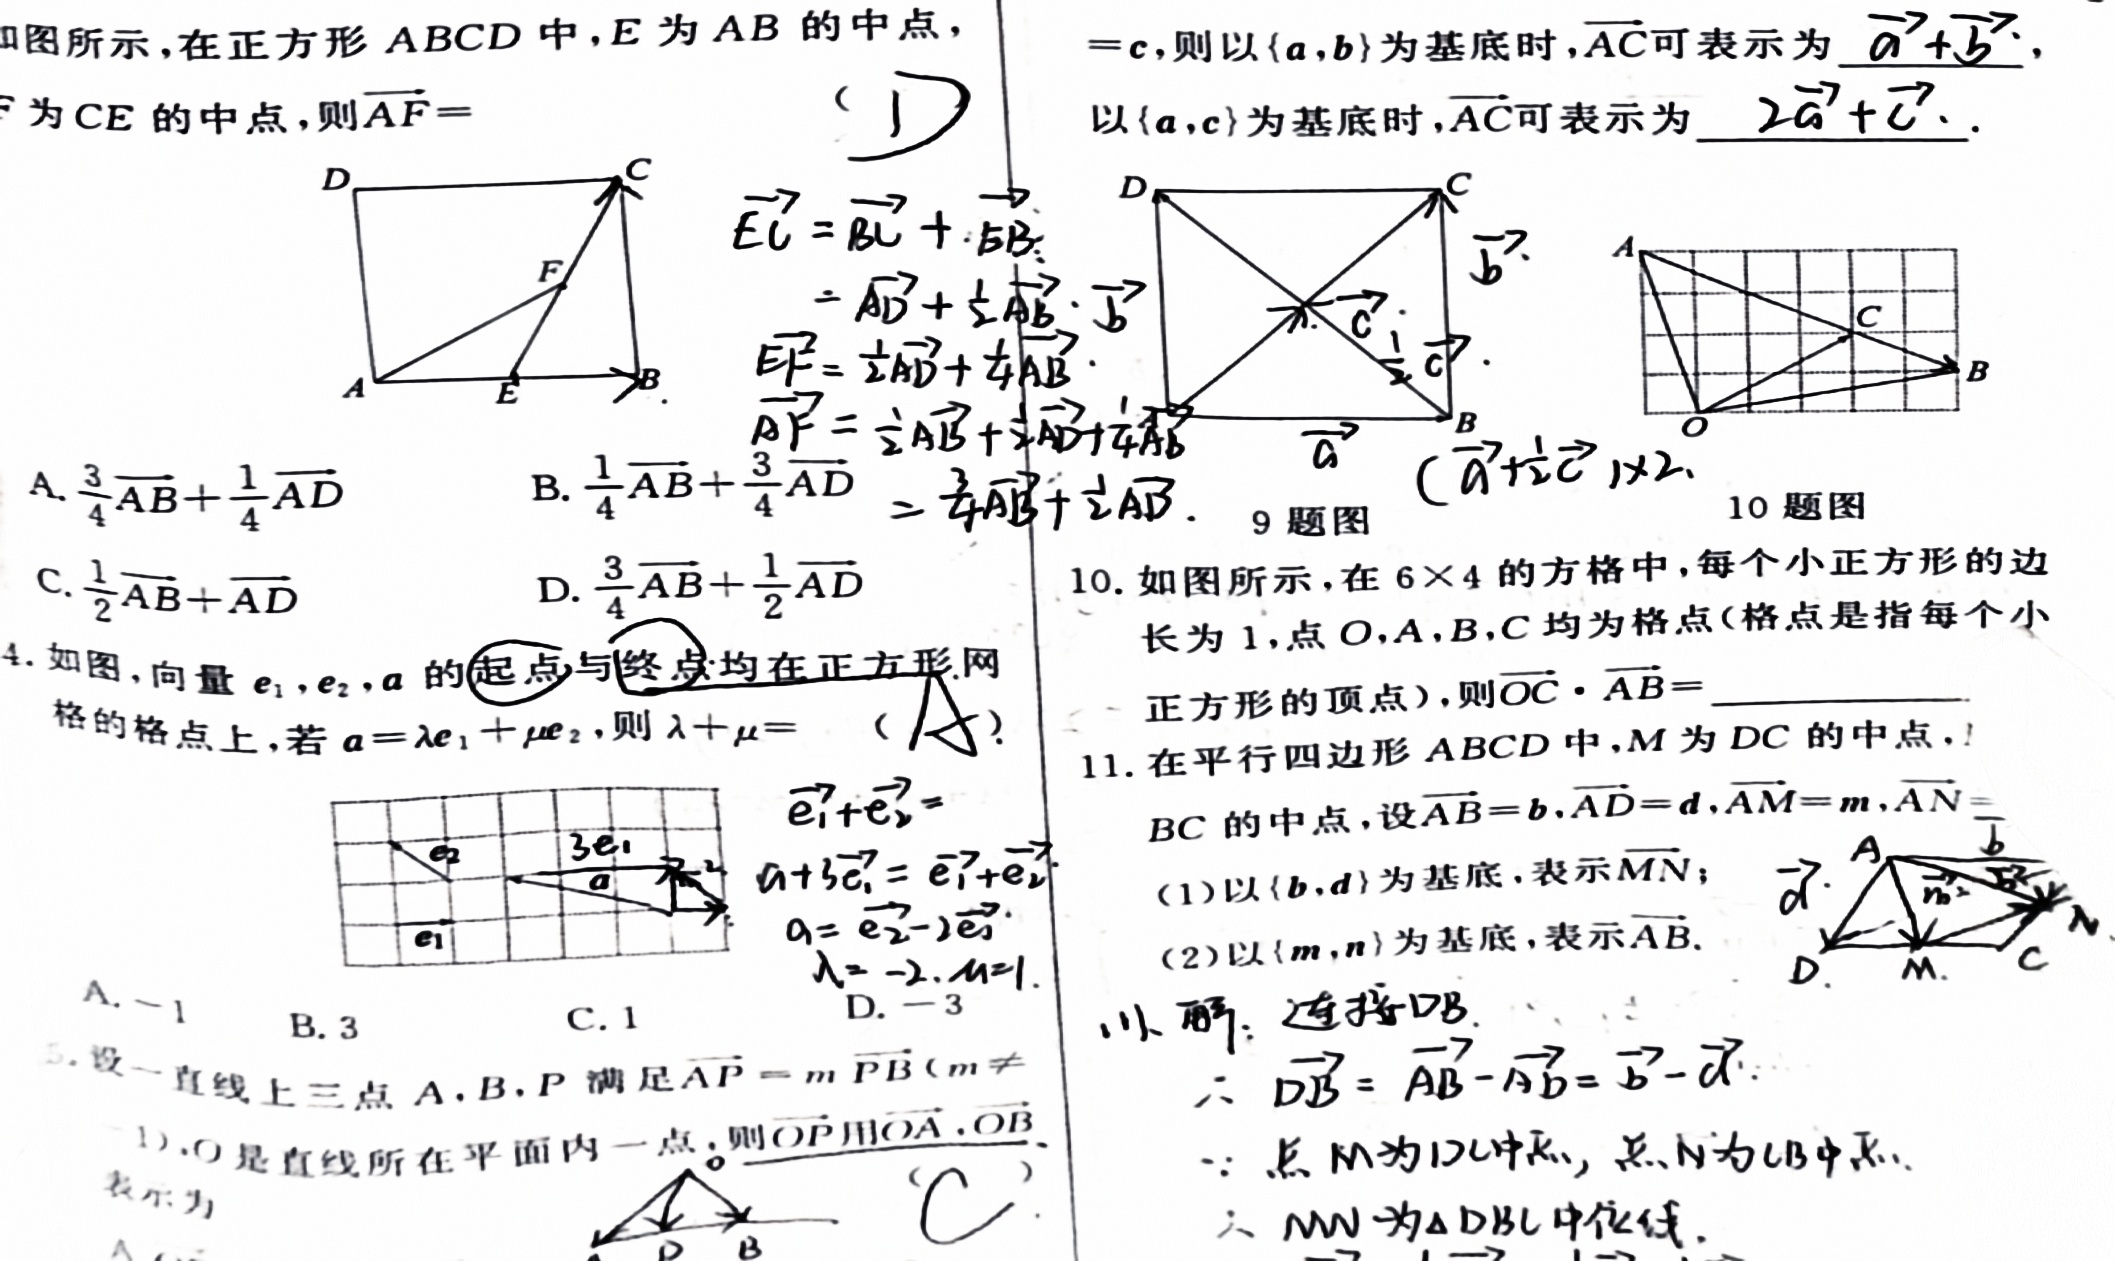 如图所示,在正方形 ABCD 中,E 为 AB 的中点,
F 为 CE 的中点,则AF= ( D
D C F A E B
EC = BC + EB
= AD + 1/2 AB · b
EF = 1/2 AD + 1/4 AB
AF = 1/2 AB + 1/2 AD + 1/4 AB
= 3/4 AB + 1/2 AD .
A. 3/4 AB + 1/4 AD B. 1/4 AB + 3/4 AD
C. 1/2 AB + AD D. 3/4 AB + 1/2 AD
4. 如图,向量 e₁,e₂,a 的起点与终点均在正方形网
格的格点上,若 a=λe₁+μe₂,则 λ+μ= ( A )
e₂ 3e₁ a e₁
e₁+e₂ =
a+3e₁ = e₁+e₂
a = e₂-2e₁
λ = -2. μ=1.
A. -1 B. 3 C. 1 D. -3
5. 设一直线上三点 A,B,P 满足AP = m PB(m≠
-1),O 是直线所在平面内一点,则OP用OA,OB
表示为 ( C )
O P B
=c,则以{a,b}为基底时,AC可表示为 a+b ,
以{a,c}为基底时,AC可表示为 2a+c .
D C b c 1/2 c a B
(a+1/2 c)×2.
9 题图
A C B O
10 题图
10. 如图所示,在 6×4 的方格中,每个小正方形的边
长为 1,点 O,A,B,C 均为格点(格点是指每个小
正方形的顶点),则OC · AB=
11. 在平行四边形 ABCD 中,M 为 DC 的中点,
BC 的中点,设AB=b,AD=d,AM=m,AN=
(1)以{b,d}为基底,表示MN;
(2)以{m,n}为基底,表示AB.
A b d m N D M C
(1) 解: 连接DB.
∴ DB = AB-AD = b-d
∵ 点 M为DC中点, 点N为CB中点.
∴ MN 为△DBC中位线.